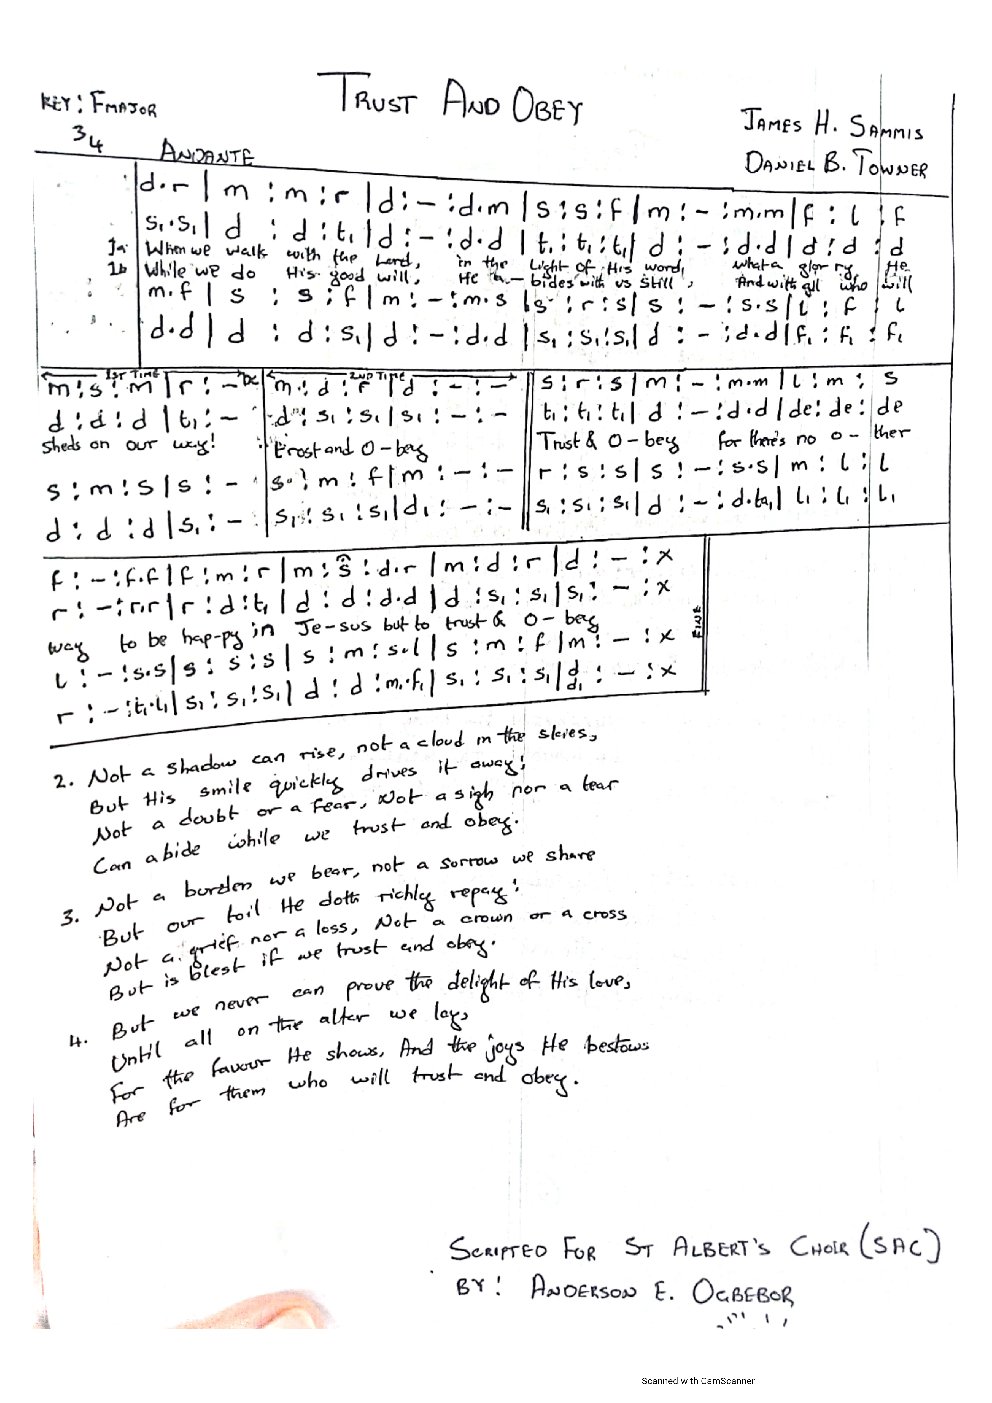 TRUST AND OBEY
KEY: F MAJOR
3 4
ANDANTE
JAMES H. SAMMIS
DANIEL B. TOWNER
d.r | m : m : r | d : - : d.m | s : s : f | m : - : m.m | f : l : f
s₁.s₁ | d : d : t₁ | d : - : d.d | t₁ : t₁ : t₁ | d : - : d.d | d : d : d
1a When we walk with the Lord, in the Light of His word, what a glo-ry He
1b While we do His good will, He a-bides with us still, And with all who will
m.f | s : s : f | m : - : m.s | s : r : s | s : - : s.s | l : f : l
d.d | d : d : s₁ | d : - : d.d | s₁ : s₁ : s₁ | d : - : d.d | f₁ : f₁ : f₁
1ST TIME DC 2ND TIME
m : s : m | r : - m : d : r | d : - : - s : r : s | m : - : m.m | l : m : s
d : d : d | t₁ : - d : s₁ : s₁ | s₁ : - : - t₁ : t₁ : t₁ | d : - : d.d | de : de : de
Sheds on our way! trost and O-bey Trust & O-bey for there's no o-ther
s : m : s | s : - s : m : f | m : - : - r : s : s | s : - : s.s | m : l : l
d : d : d | s₁ : - s₁ : s₁ : s₁ | d₁ : - : - s₁ : s₁ : s₁ | d : - : d.ta₁ | l₁ : l₁ : l₁
f : - : f.f | f : m : r | m : s : d.r | m : d : r | d : - : x
r : - : r.r | r : d : t₁ | d : d : d.d | d : s₁ : s₁ | s₁ : - : x
way to be hap-py in Je-sus but to trust & O-bey
FINE
l : - : s.s | s : s : s | s : m : s.l | s : m : f | m : - : x
r : - : t₁.t₁ | s₁ : s₁ : s₁ | d : d : m₁.f₁ | s₁ : s₁ : s₁ | d d₁ : - : x
2. Not a shadow can rise, not a cloud in the skies,
But His smile quickly drives it away;
Not a doubt or a fear, Not a sigh nor a tear
Can abide while we trust and obey.
3. Not a burden we bear, not a sorrow we share
But our toil He doth richly repay;
Not a grief nor a loss, Not a crown or a cross
But is blest if we trust and obey.
4. But we never can prove the delight of His love,
Until all on the alter we lay,
For the favour He shows, And the joys He bestows
Are for them who will trust and obey.
SCRIPTED FOR ST ALBERT'S CHOIR (SAC)
BY: ANDERSON E. OGBEBOR
Scanned with CamScanner